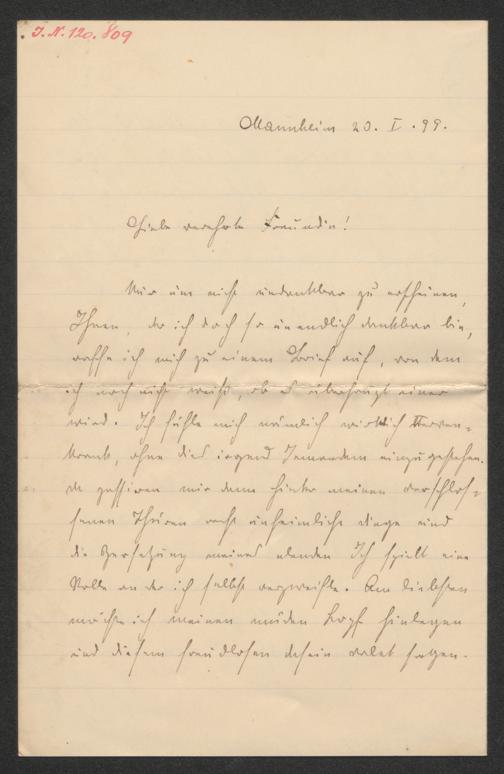 J. N. 120.809
Mannheim 20. I. 99.
Liebe verehrte Freundin!
Nur um nicht undankbar zu erscheinen,
Ihnen, der ich doch so unendlich dankbar bin,
raffe ich mich zu einem Brief auf, von dem
ich noch nicht weiß, ob es überhaupt einer
wird. Ich fühle mich nämlich wirklich Nerven=
krank, ohne dies irgend Jemandem einzugestehen.
Es passiren mir dann hinter meinen verschlos=
senen Thüren recht unheimliche dinge und
die Zersetzung meines elenden Ich spielt eine
Rolle an der ich selbst verzweifle. Am liebsten
möchte ich meinen müden Kopf hinlegen
und diesem freudlosen dasein valet sagen.